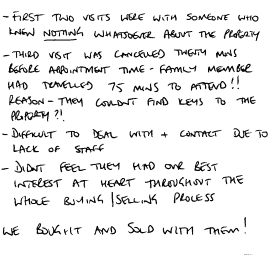 - FIRST TWO VISITS WERE WITH SOMEONE WHO
KNEW NOTHING WHATSOEVER ABOUT THE PROPERTY
- THIRD VISIT WAS CANCELLED TWENTY MINS
BEFORE APPOINTMENT TIME - FAMILY MEMBER
HAD TRAVELLED 75 MINS TO ATTEND!!
REASON - THEY COULDNT FIND KEYS TO THE
PROPERTY?!
- DIFFICULT TO DEAL WITH + CONTACT DUE TO
LACK OF STAFF
- DIDNT FEEL THEY HAD OUR BEST
INTEREST AT HEART THROUGHOUT THE
WHOLE BUYING/SELLING PROCESS
WE BOUGHT AND SOLD WITH THEM!